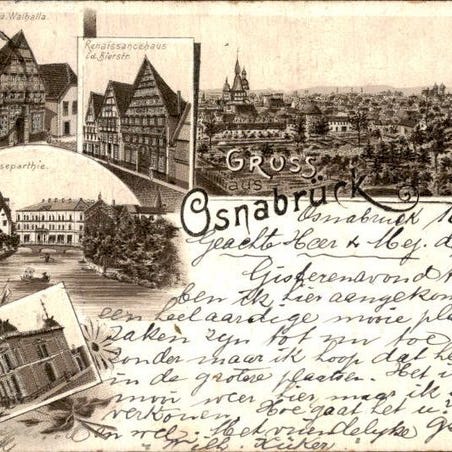 a. Walhalla.
Renaissancehaus
i.d. Bierstr.
separthie.
GRUSS
aus
Osnabrück
Osnabruck 1
Geacht Heer & Mej. d
Gisterenavond
ben ik hier aangekom
een heel aardige mooie pla
zaken zijn tot nu toe
zonder maar ik hoop dat he
in de grotere plaatsen. Het i
mooi weer hier maar ik
verkonen. Hoe gaat het u?
en wel. Met vriendelijke G
Wilh. Küker.